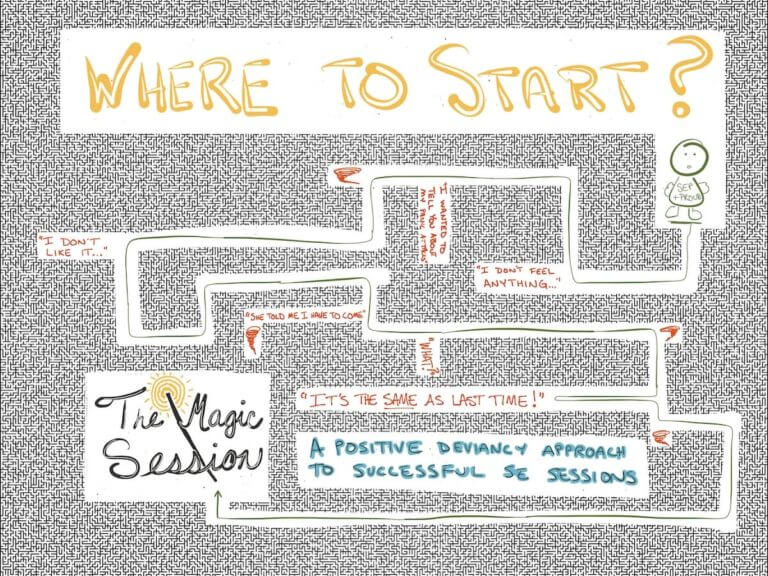 WHERE TO START?
SEP
+PROUD
I WANTED TO
TELL YOU ABOUT
MY PANIC ATTACKS
"I DON'T
LIKE IT..."
"I DON'T FEEL
ANYTHING..."
"SHE TOLD ME I HAVE TO COME"
"WHAT?"
"IT'S THE SAME AS LAST TIME!"
The Magic
Session
A POSITIVE DEVIANCY APPROACH
TO SUCCESSFUL SE SESSIONS